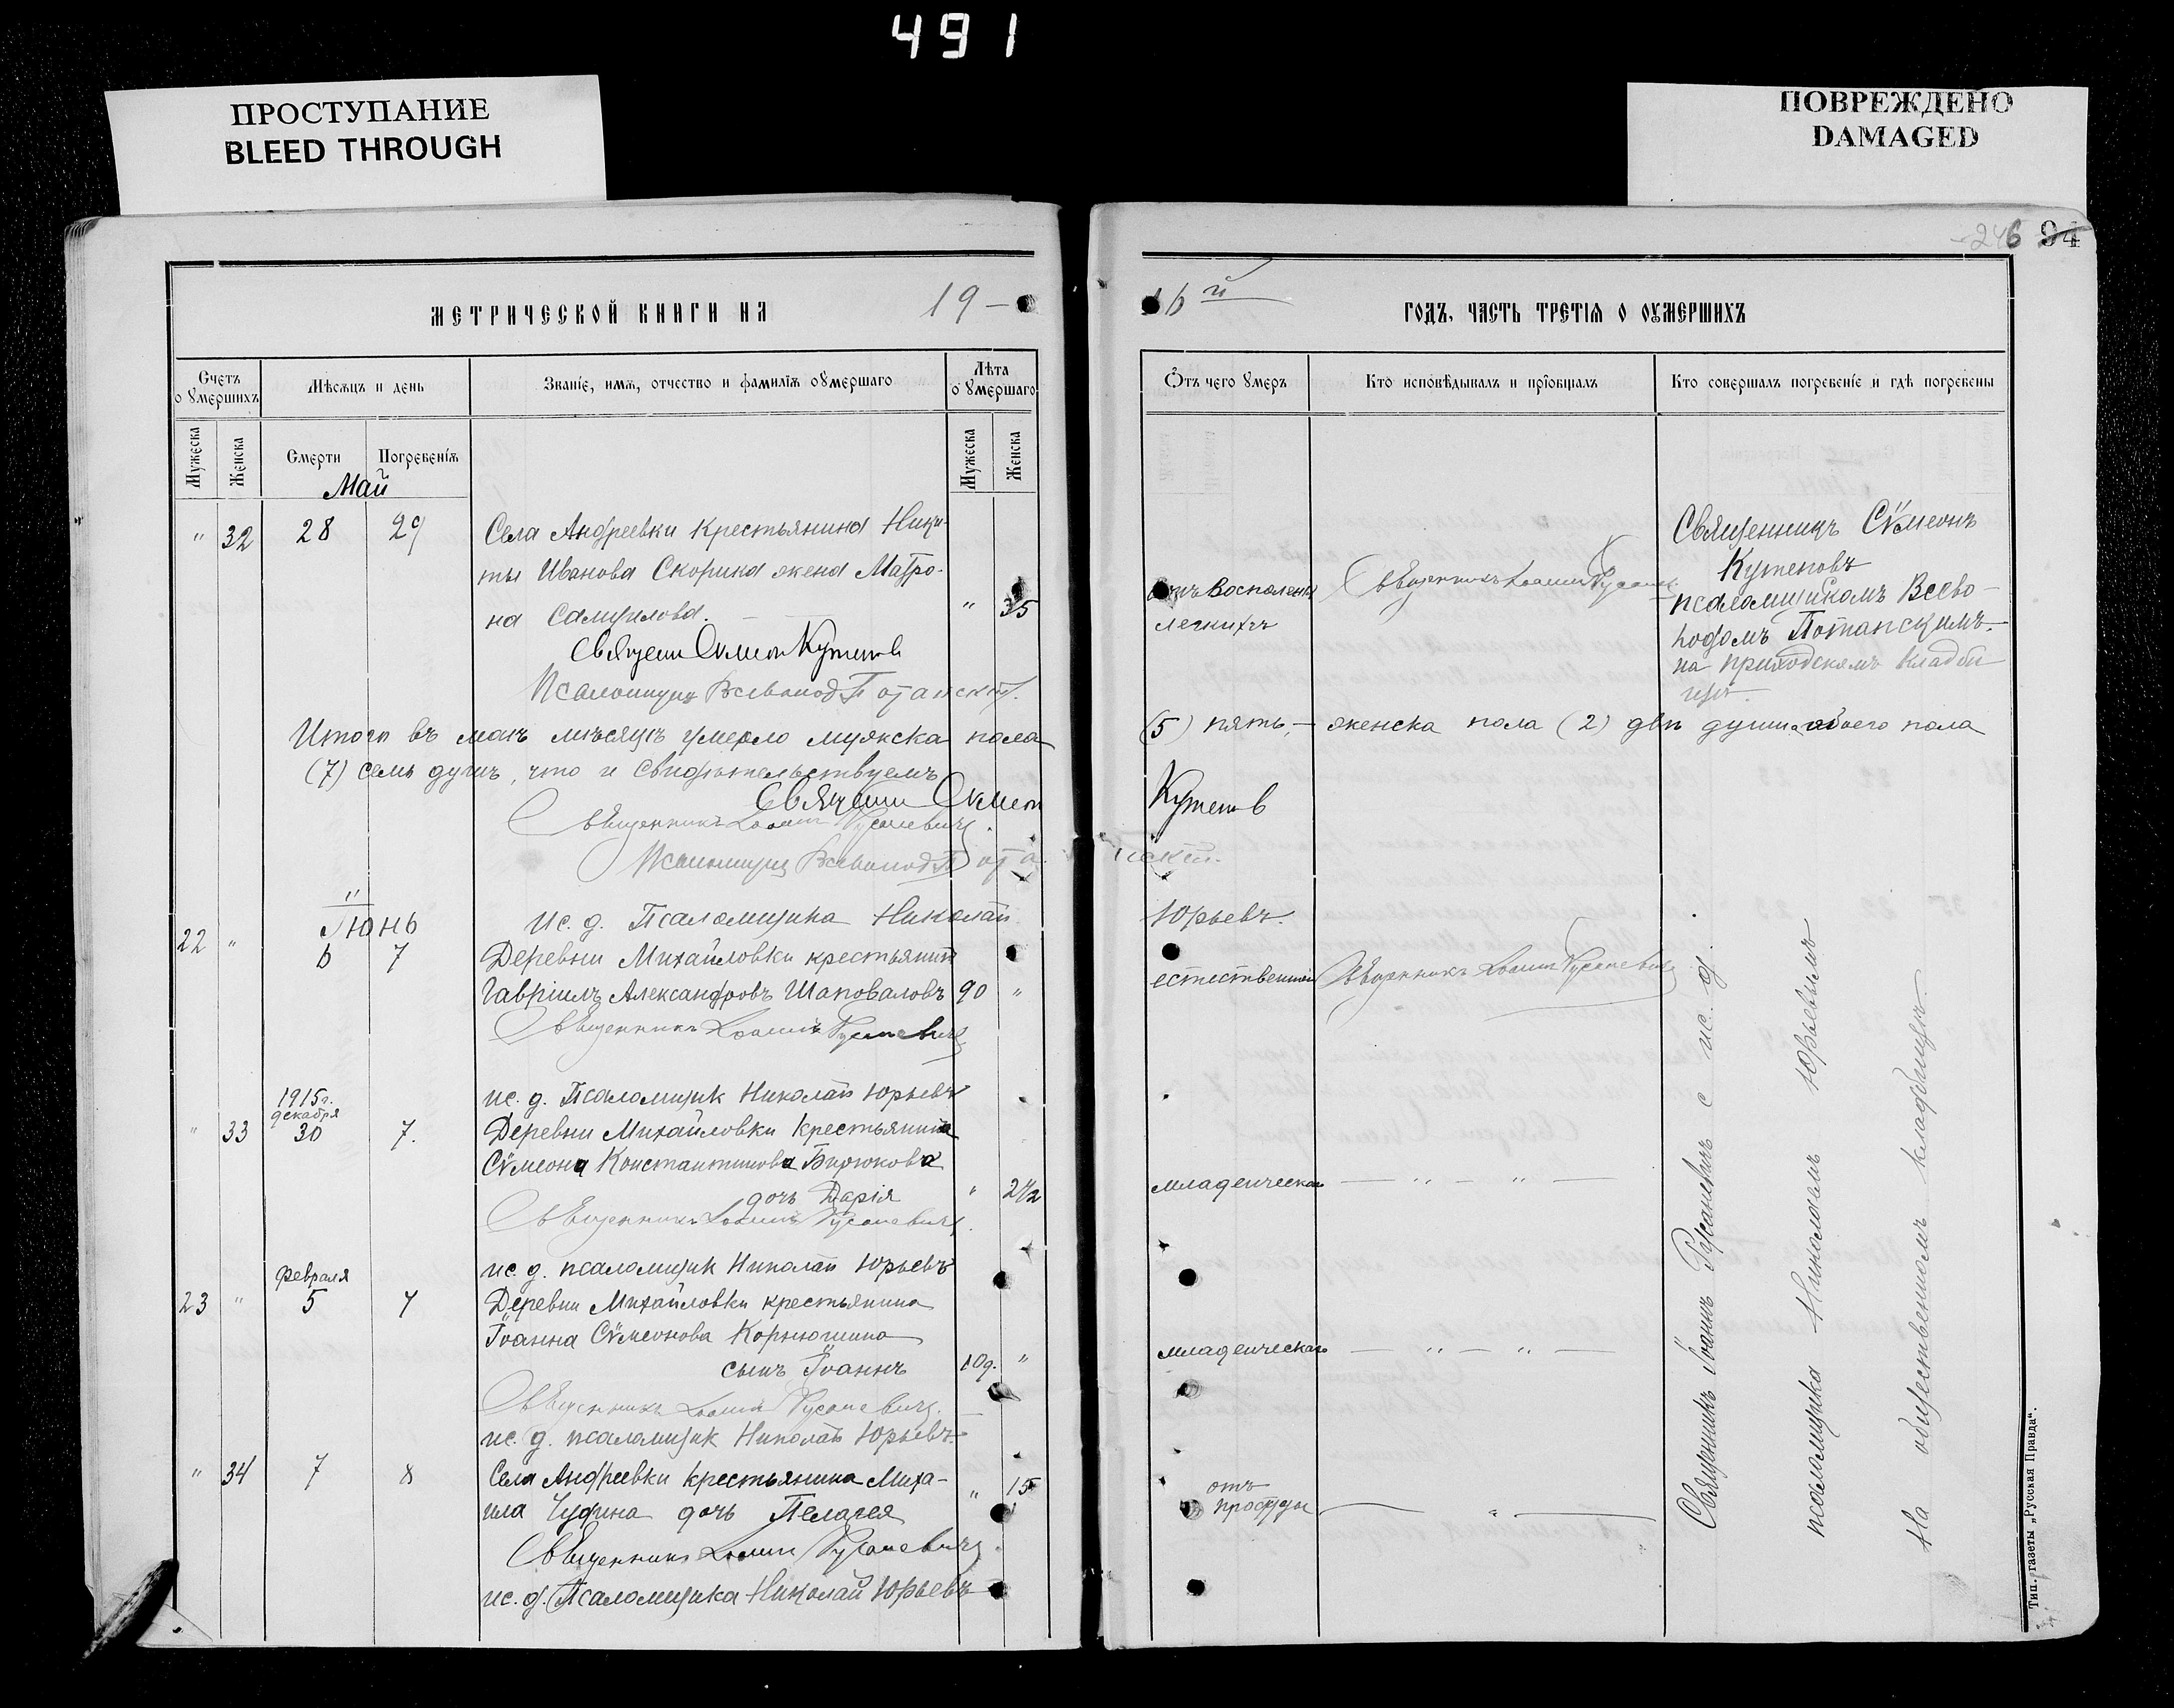 491
ПРОСТУПАНИЕ
BLEED THROUGH
ПОВРЕЖДЕНО
DAMAGED
246 94
МЕТРИЧЕСКОЙ КНИГИ НА 19-
16й ГОДЪ, ЧАСТЬ ТРЕТІѦ О ОУМЕРШИХЪ
Счетъ оумершихъ
Мѣсѧцъ и день
Званіе, имѧ, отчество и фамиліѧ оумершаго
Лѣта оумершаго
Ѿтъ чего умеръ
Кто исповѣдывалъ и пріобщалъ
Кто совершалъ погребеніе и гдѣ погребены
Мужеска
Женска
Смерти
Погребеніѧ
Мужеска
Женска
Май
" 32 28 29 Села Андреевки крестьянина Ники-
ты Иванова Скорика жена Матро-
на Самуилова. " 35
Отъ воспаленія
легкихъ
Священникъ Іоаннъ Русаневичъ
Священникъ Сѵмеонъ
Кутеповъ
псаломщикомъ Всево-
лодомъ Потанскимъ
на приходскомъ кладби
щѣ
Священ Сѵмеон Кутепов
Псаломщикъ Всеволод Потанскій.
Итого въ маѣ мѣсяцѣ умерло мужска пола (5) пять, — женска пола (2) двѣ души а обоего пола
(7) семь душъ, что и свидѣтельствуемъ
Священ Сѵмеон Кутепов
Священникъ Іоаннъ Русаневичъ.
Псаломщикъ Всеволод Потанскій.
ис. д. Псаломщика Николай Юрьевъ.
Іюнь
22 " 6 7 Деревни Михайловки крестьянинъ
Гавріилъ Александровъ Шаповаловъ 90 "
естественной
Священникъ Іоаннъ Русаневичъ
Священникъ Іоаннъ Русаневичъ
ис. д. Псаломщик Николай Юрьевъ
1915г.
декабря
" 33 30 7. Деревни Михайловки крестьянина
Сѵмеона Константинова Бирюкова
дочь Дарія " 2 1/2
младенческая — " — " —
Священникъ Іоаннъ Русаневичъ.
ис. д. псаломщик Николай Юрьевъ
февраля
23 " 5 7 Деревни Михайловки крестьянина
Іоанна Сѵмеонова Корнюшина
сынъ Іоаннъ 10д. "
младенческаго — " — " —
Священникъ Іоаннъ Русаневичъ.
ис. д. псаломщик Николай Юрьевъ
" 34 7 8 Села Андреевки крестьянина Миха-
ила Чудина дочь Пелагея " 15
отъ
простуды — " —
Священникъ Іоаннъ Русаневичъ.
ис. д. Псаломщика Николай Юрьевъ
Священникъ Іоаннъ Русаневичъ с ис. д.
псаломщика Николаемъ Юрьевымъ
На общественномъ кладбищѣ.
Тип. газеты „Русская Правда“.